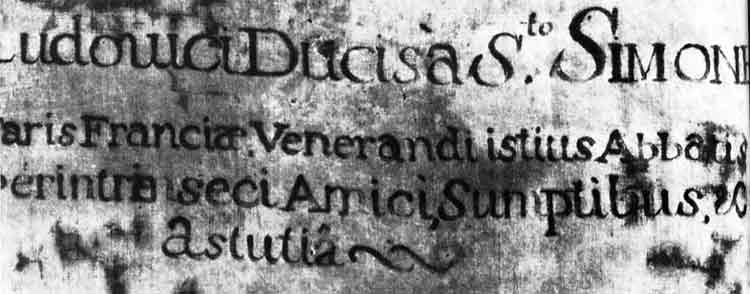 Ludouici Ducis a S.to SIMONE
Paris Franciæ, Venerandi istius Abbatis
perintrinseci Amici, Sumptibus, &
astutiâ